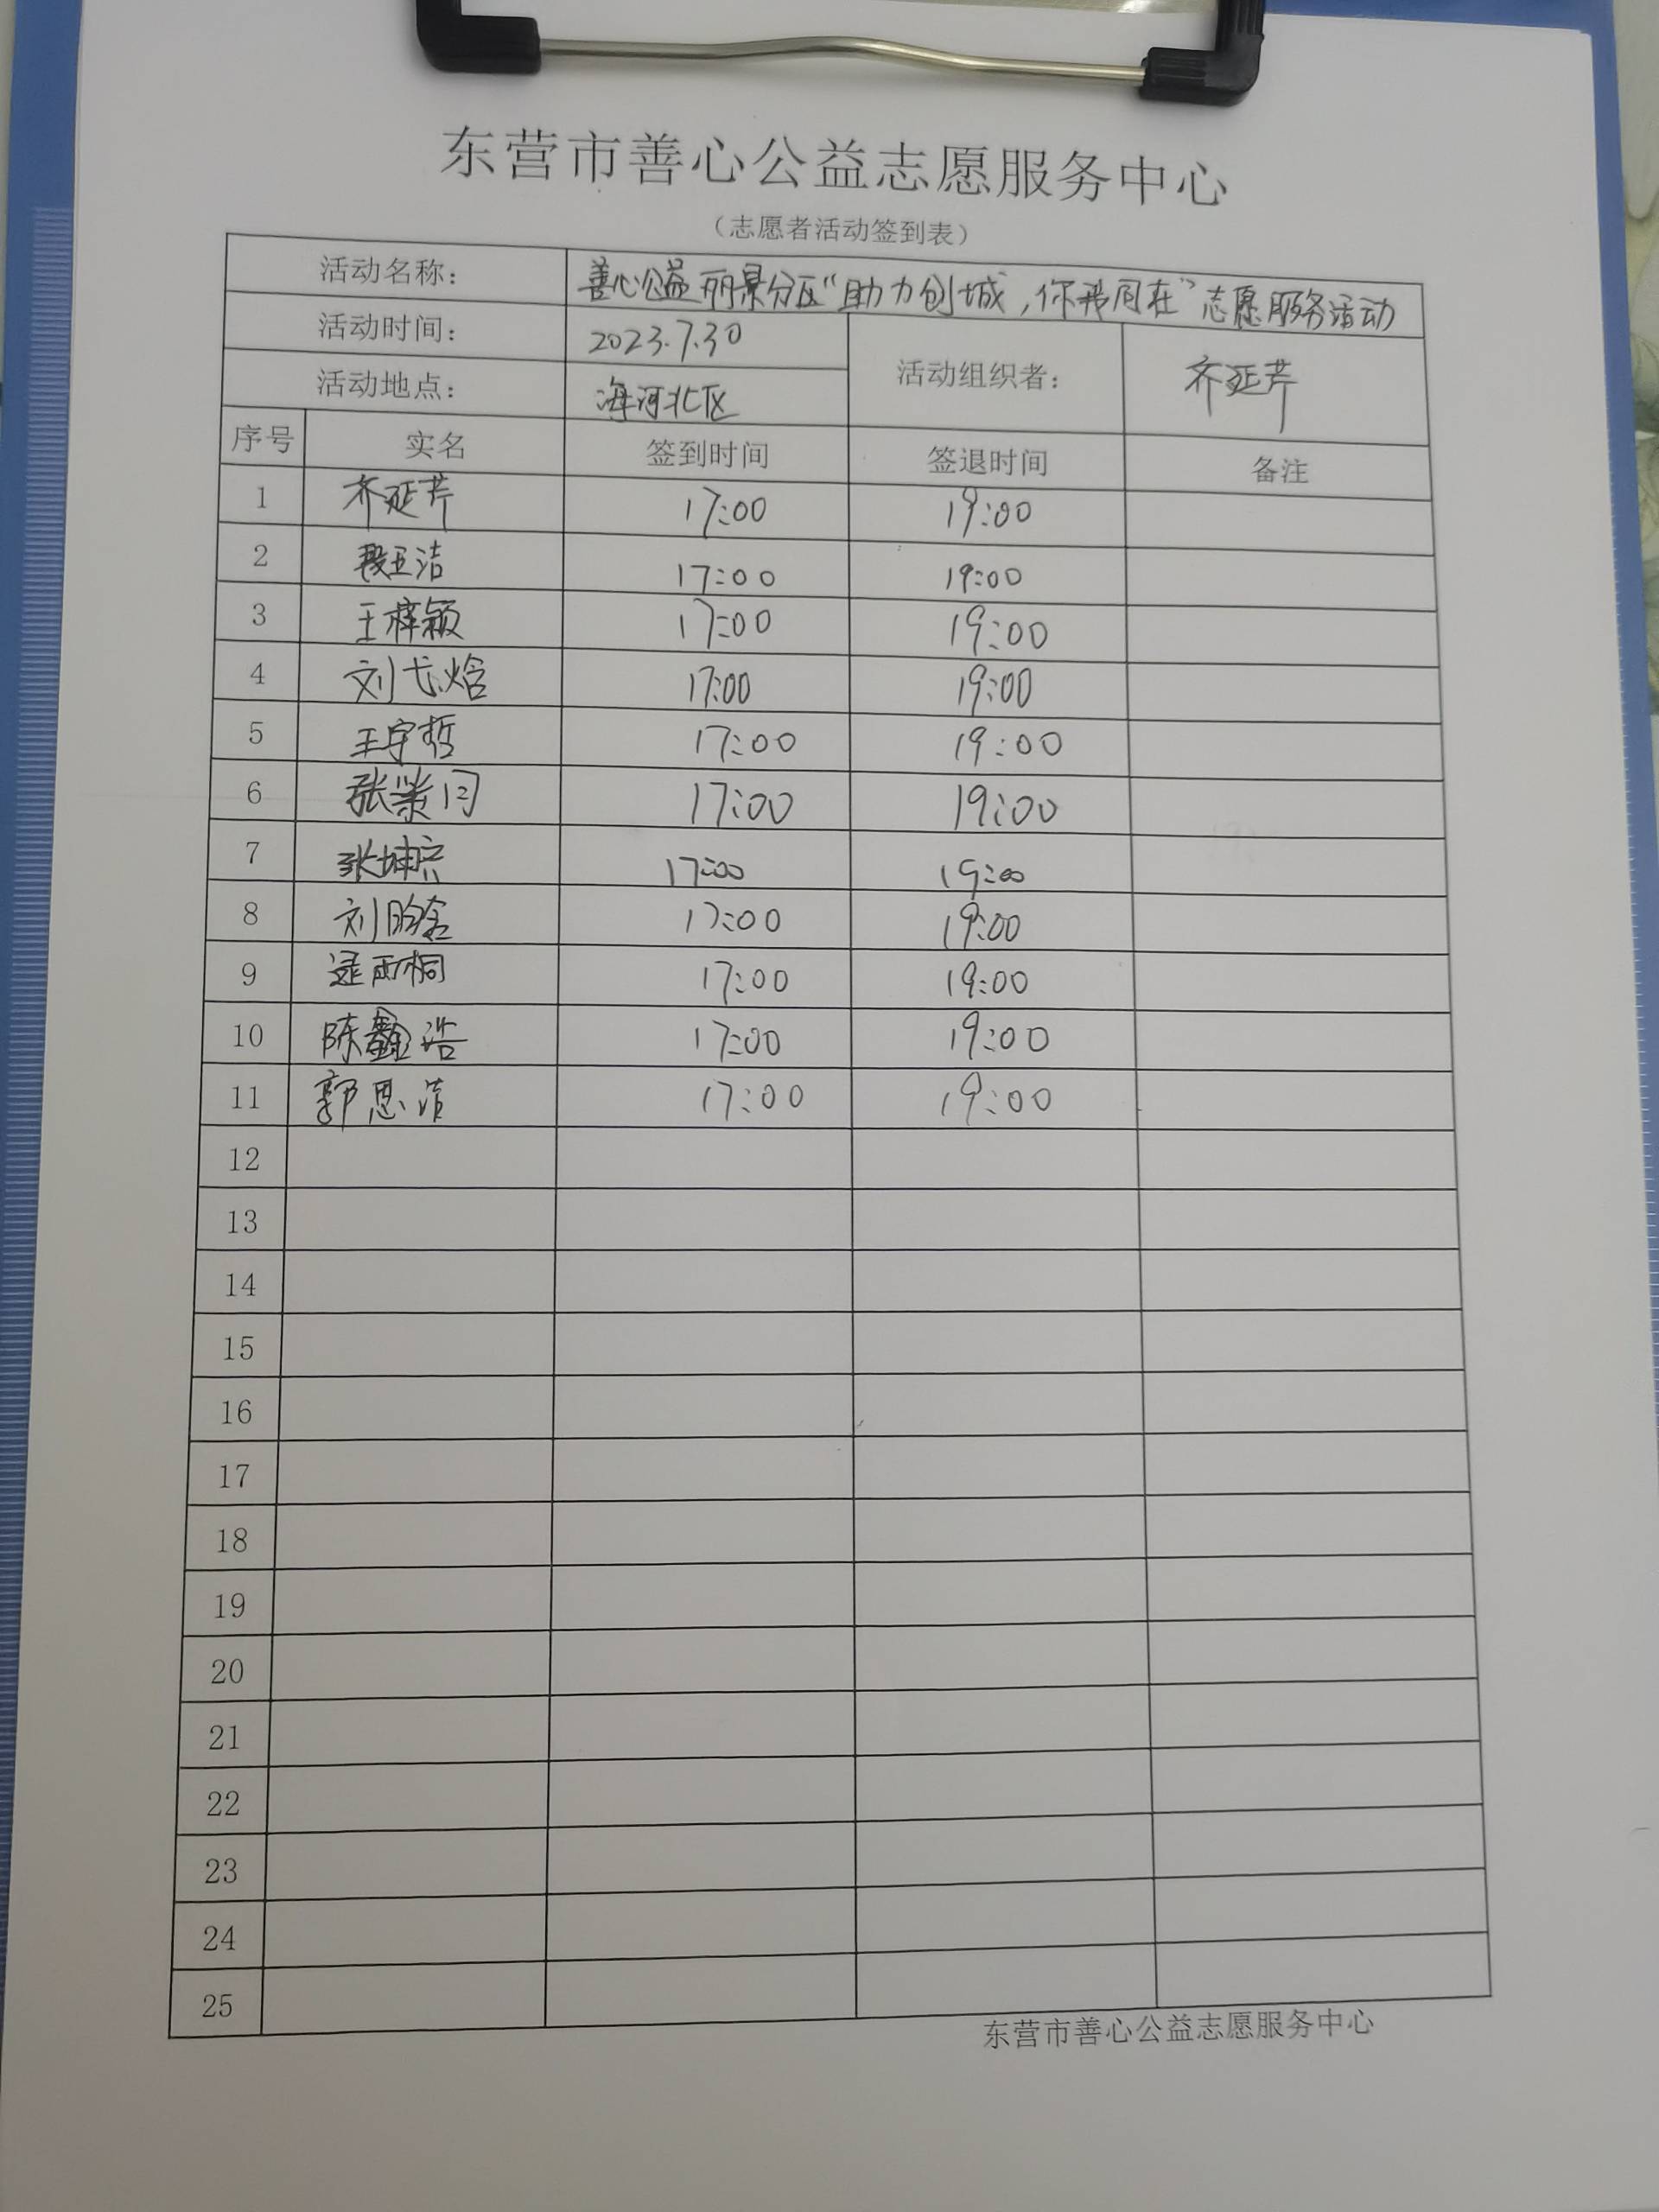 东营市善心公益志愿服务中心
（志愿者活动签到表）
活动名称： 善心公益丽景分区“助力创城，你我同在”志愿服务活动
活动时间： 2023.7.30
活动地点： 海河北区
活动组织者： 齐延芹
序号 实名 签到时间 签退时间 备注
1 齐延芹 17:00 19:00
2 段玉洁 17:00 19:00
3 王梓颖 17:00 19:00
4 刘弋焓 17:00 19:00
5 王宇哲 17:00 19:00
6 张紫 17:00 19:00
7 张坤 17:00 19:00
8 刘昀 17:00 19:00
9 雨桐 17:00 19:00
10 陈鑫浩 17:00 19:00
11 郭思洁 17:00 19:00
12
13
14
15
16
17
18
19
20
21
22
23
24
25
东营市善心公益志愿服务中心